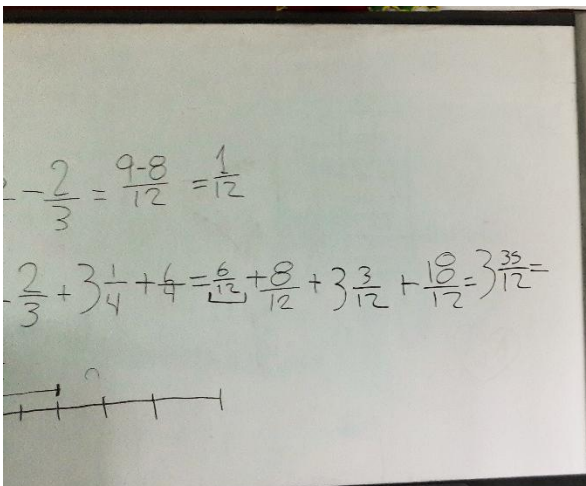 - 2/3 = 9-8/12 = 1/12
2/3 + 3 1/4 + 6/4 = 6/12 + 8/12 + 3 3/12 + 18/12 = 3 35/12 =